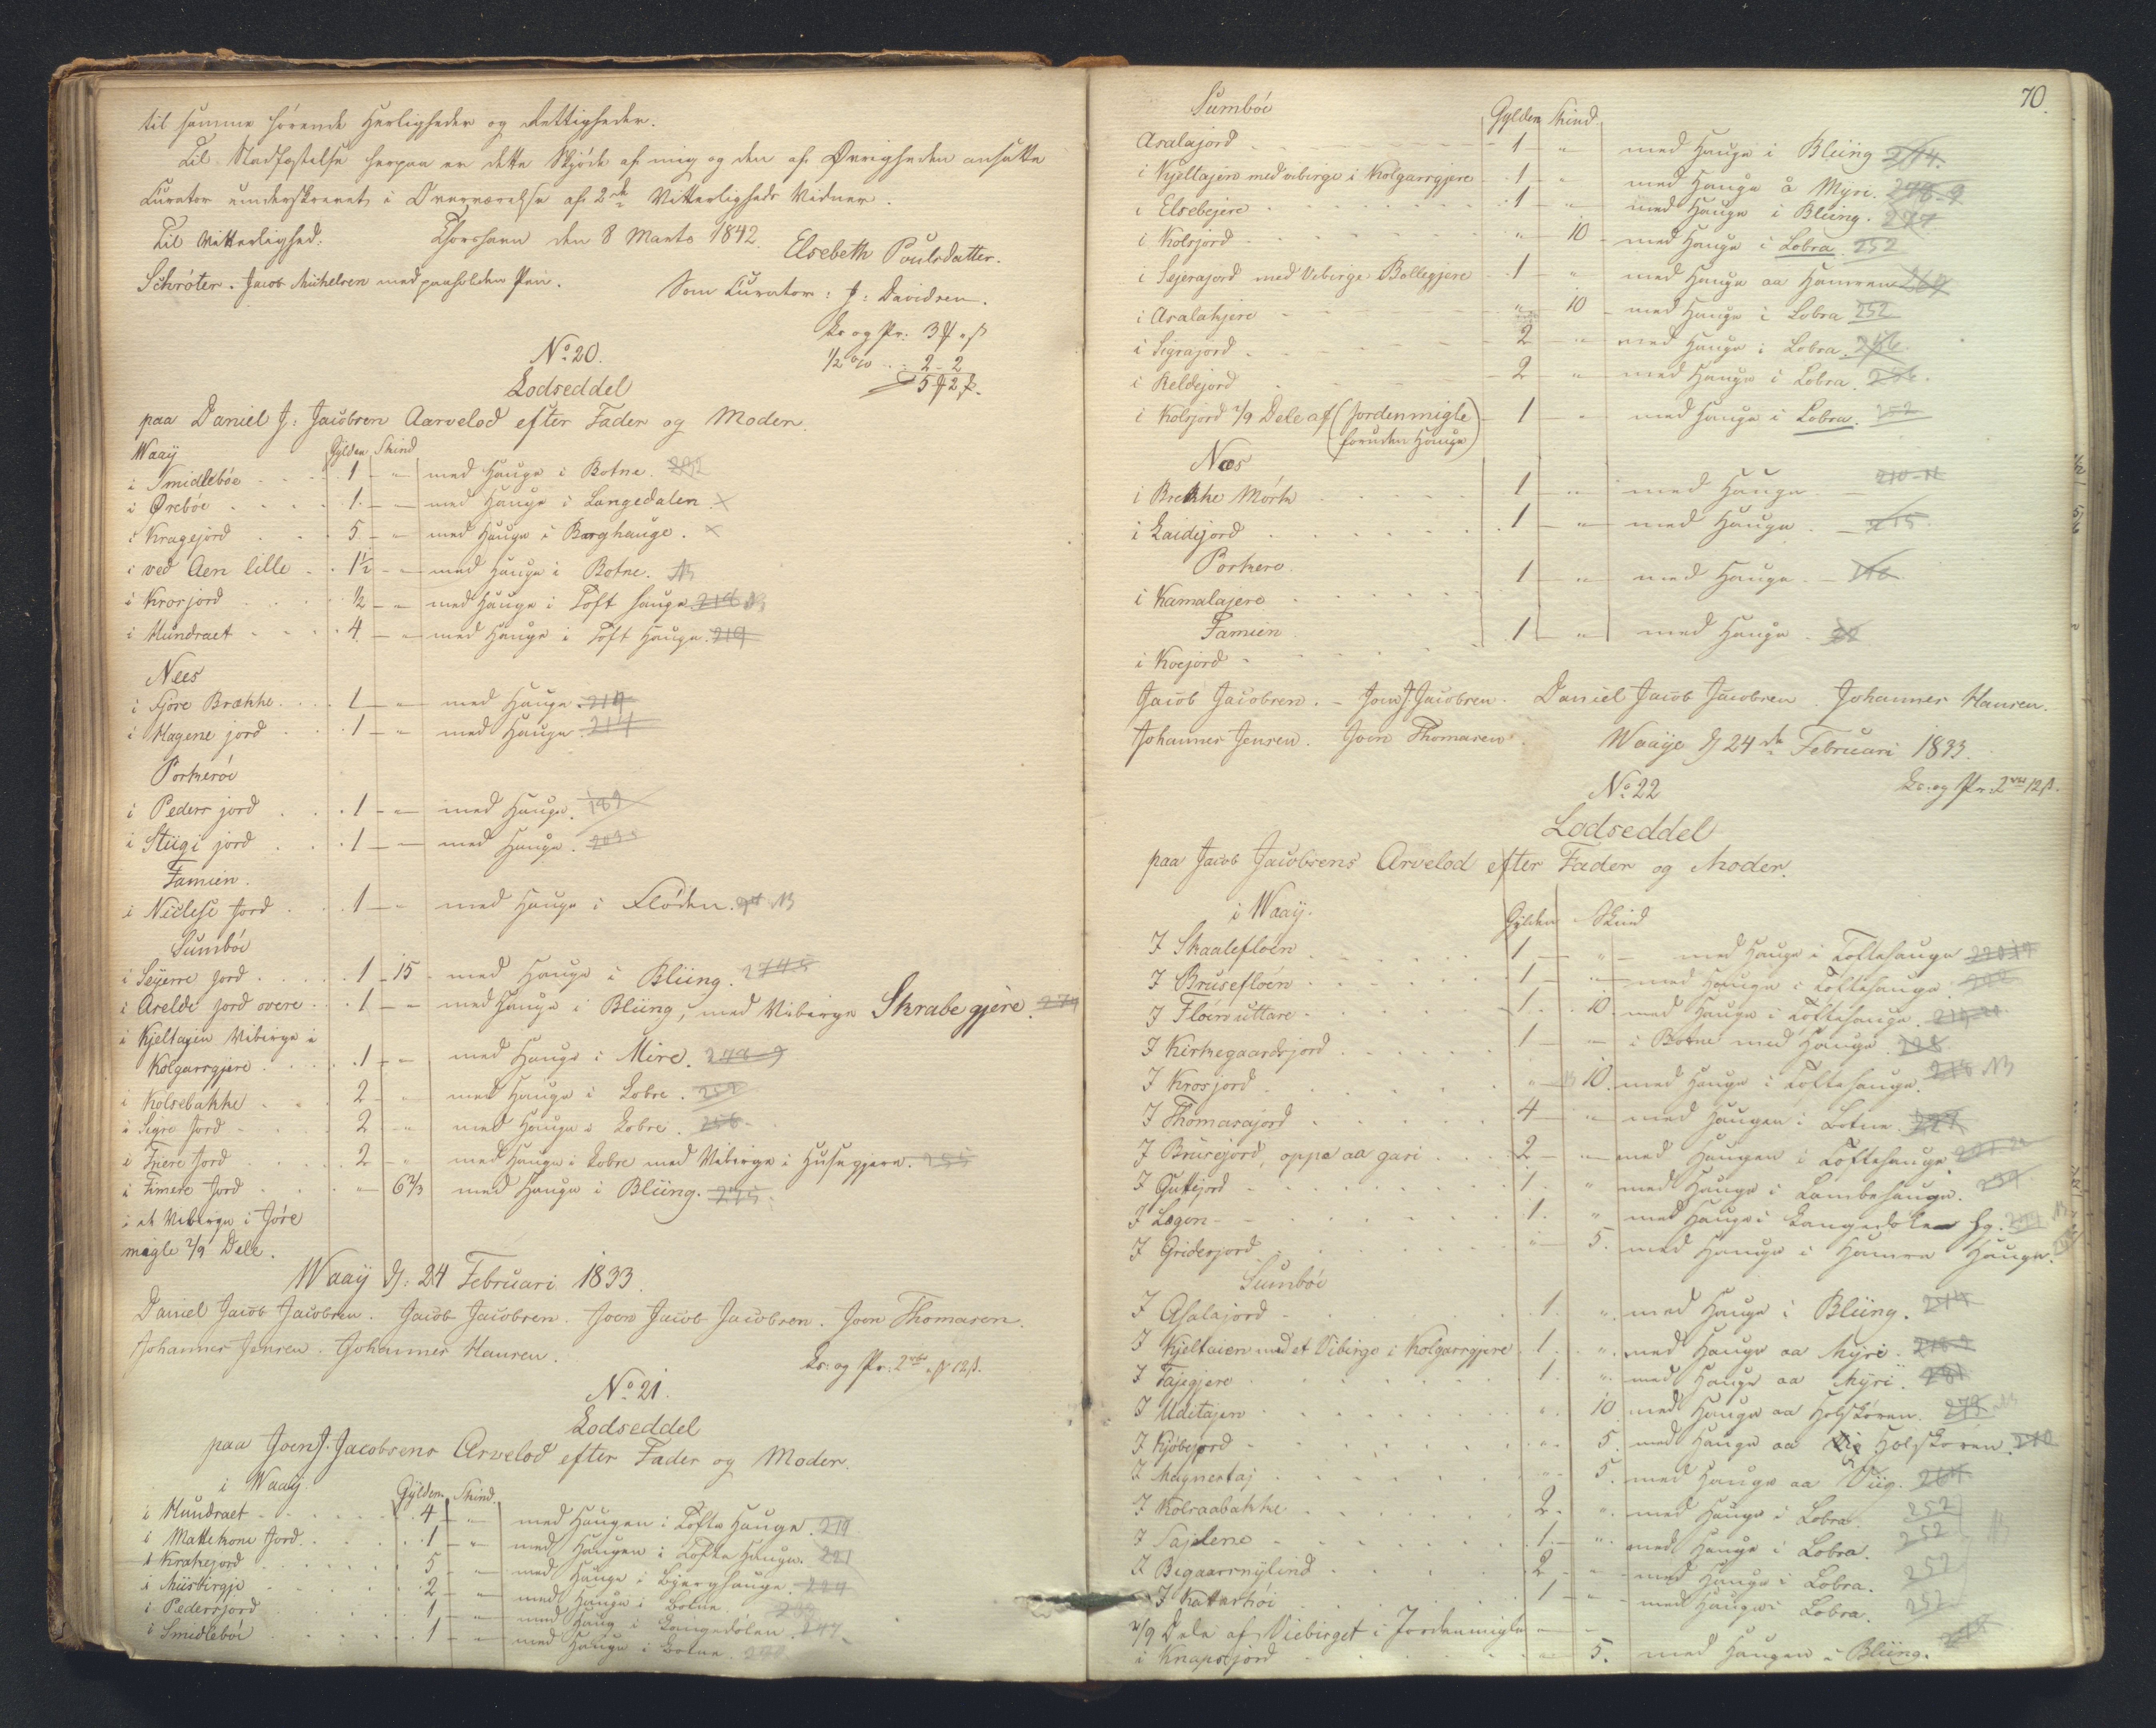 til samme hörende Herligheder og Rettigheder.
Til Stadfæstelse herpaa er dette Skjöde af mig og den af Øvrigheden ansatte
Curator underskrevet i Overværelse af 2de Vitterligheds Vidner.
Til Vitterlighed. Thorshavn den 8 Marts 1842. Elsebeth Poulsdatter.
Schröter. Jacob Michelsen med paaholden Pen. Som Curator: J: Davidsen.
No 20.
Lodseddel
½ % .. 2 - 2
paa Daniel J: Jacobsen Aarvelod efter Fader og Moder.
Waaÿ Gÿlden Skind
i Smidlebøe 1 " med Hauge i Botne. 232
i Ørebøe 1 - med Hauge i Langedalen. x
i Kragejord 5 - " med Hauge i Barghauge. x
i ved Aen lille 1½ - med Hauge i Botne. NB
i Krosjord ½ - " med Hauge i Toft Hauge 218 NB
i Hundraet 4 - " med Hauge i Toft Hauge. 219
Nees
i Fjøre Brække 1 - " med Hauge. 214
i Hagene jord 1 - " med Hauge. 214
Porkerøi
i Peders jord 1 - " med Hauge. 189
i Stiigi jord 1 - med Hauge. 203
Famien.
i Niclese Jord 1 - " med Hauge i Fløden. NB
Sumbøe
i Seÿerre Jord 1 - 15 - med Hauge i Bliing. 274
i Arelde jord overe 1 - " med Hauge i Bliing, med Vibirge Skrabegjere. 274
i Kjeltajen Vibirge i
Kolgarrgjere 1 - " med Hauge i Mire. 278-9
i Kolsebakke 2 - " med Hauge i Lobre. 252
i Segre Jord 2 - " med Hauge i Lobre. 256
i Friere Jord 2 - " med Hauge i Lobre med Vibirge i Husegjere. 255
i Fimere Jord " 6⅔ med Hauge i Bliing. 275
i et Vibirge i Jøre
migle 2/9 Dele.
Waaÿ d: 24 Februari 1833.
Daniel Jacob Jacobsen. Jacob Jacobsen. Joen Jacob Jacobsen. Joen Thomasen.
Johannes Jensen. Johannes Hansen.
No 21.
Lodseddel
paa Joen J. Jacobsens Arvelod efter Fader og Moder.
i Waaÿ. Gÿlden Skind.
i Hundraet 4 - " med Haugen i Tofte Hauge. 219
i Mattekone Jord 1 - " med Haugen i Tofte Hauge. 221
i Krakejord 5 - med Hauge i Bjerghauge. 224
i Miisbirgje 2 - " med Hauge i Botne.
i Pedersjord 1 - " med Haug i Langedölen. 247
i Smidlebøi 1 - " med Hauge i Botne.
70.
Sumbøe Gylden Skind
Asalajord 1 - " med Hauge i Bliing 274.
i Kjeltajen med vibirge i Kolgarrgjere 1 - " med Hauge å Myre. 278-9
i Elsebejere 1 - " med Hauge i Bliing. 277
i Kolsjord " 10 - med Hauge i Lobra. 252
i Sejerajord med Vibirge Bollegjere 1 - " med Hauge aa Hamren 269
i Asalakjere " 10 - med Hauge i Lobra 252
i Sigrajord 2 - " med Hauge i Lobra. 256
i Keldejord 2 " med Hauge i Lobra. 256
i Kolsjord 2/9 Dele af (Jordenmigle 1 - " med Hauge i Lobra. 252
foruden Hauge)
Nees
i Brekke Mörk 1 - " med Hauge 210-11
i Laidejord 1 - " med Hauge. - 215
Porkere.
i Kamalajere 1 - " med Hauge. -
Famien
i Koejord 1 - " med Hauge.
Jacob Jacobsen. - Joen J. Jacobsen. Daniel Jacob Jacobsen. Johannes Hansen.
Johannes Jensen. Joen Thomasen. Waaÿe d 24de Februari 1833.
No 22
Lodseddel
paa Jacob Jacobsens Arvelod efter Fader og Moder.
i Waaÿ. Gylden Skind
I Skaalefloén 1 - " - med Hauge i Toftehauge
I Brusefloén 1 - " - med Hauge i Toftehauge.
I Floén uttare 1. 10. med Hauge i Toftehauge.
I Kirkegaardsjord 1 - " - i Botne med Hauge. 228
I Krosjord " 10. med Hauge i Toftehauge. 218 NB
I Thomasajord 4 - " med Haugen i Botne. 227
I Brusejord, oppe aa gari 2 - " - med Haugen i Toftehauge.
I Gutejord 1. " med Hauge i Lambehauge. 239
I Lægon 1. " med Hauge i Langedolen Hg.
I Griderjord " 5. med Hauge i Hamra Hauge.
Sumbøi
I Asalajord 1. " med Hauge i Bliing. 274
I Kjeltaien med et Vibirge i Kolgarrgjere 1. " med Hauge aa Myre. 278-9
I Tajegjere 1. " med Hauge aa Myri. 281
I Uditajen " 10 med Hauge aa Holskoren. 279 NB
I Kjöbejord " 5. med Hauge aa Holskoren. 270
I Magnestaj " 5. med Hauge aa Viig. 264
I Kolraabakke 2. " med Hauge i Lobra. 252
I Sajdene 1. " med Hauge i Lobra. 252
I Begaarnylind 2 - " med Hauge i Lobra. 252
I Kattarhøi 1 - " - med Hauge i Lobra. 252
2/9 Dele af Viebirget i Jordenmigle " -
i Knapsjord " 5. med Haugen i Bliing.